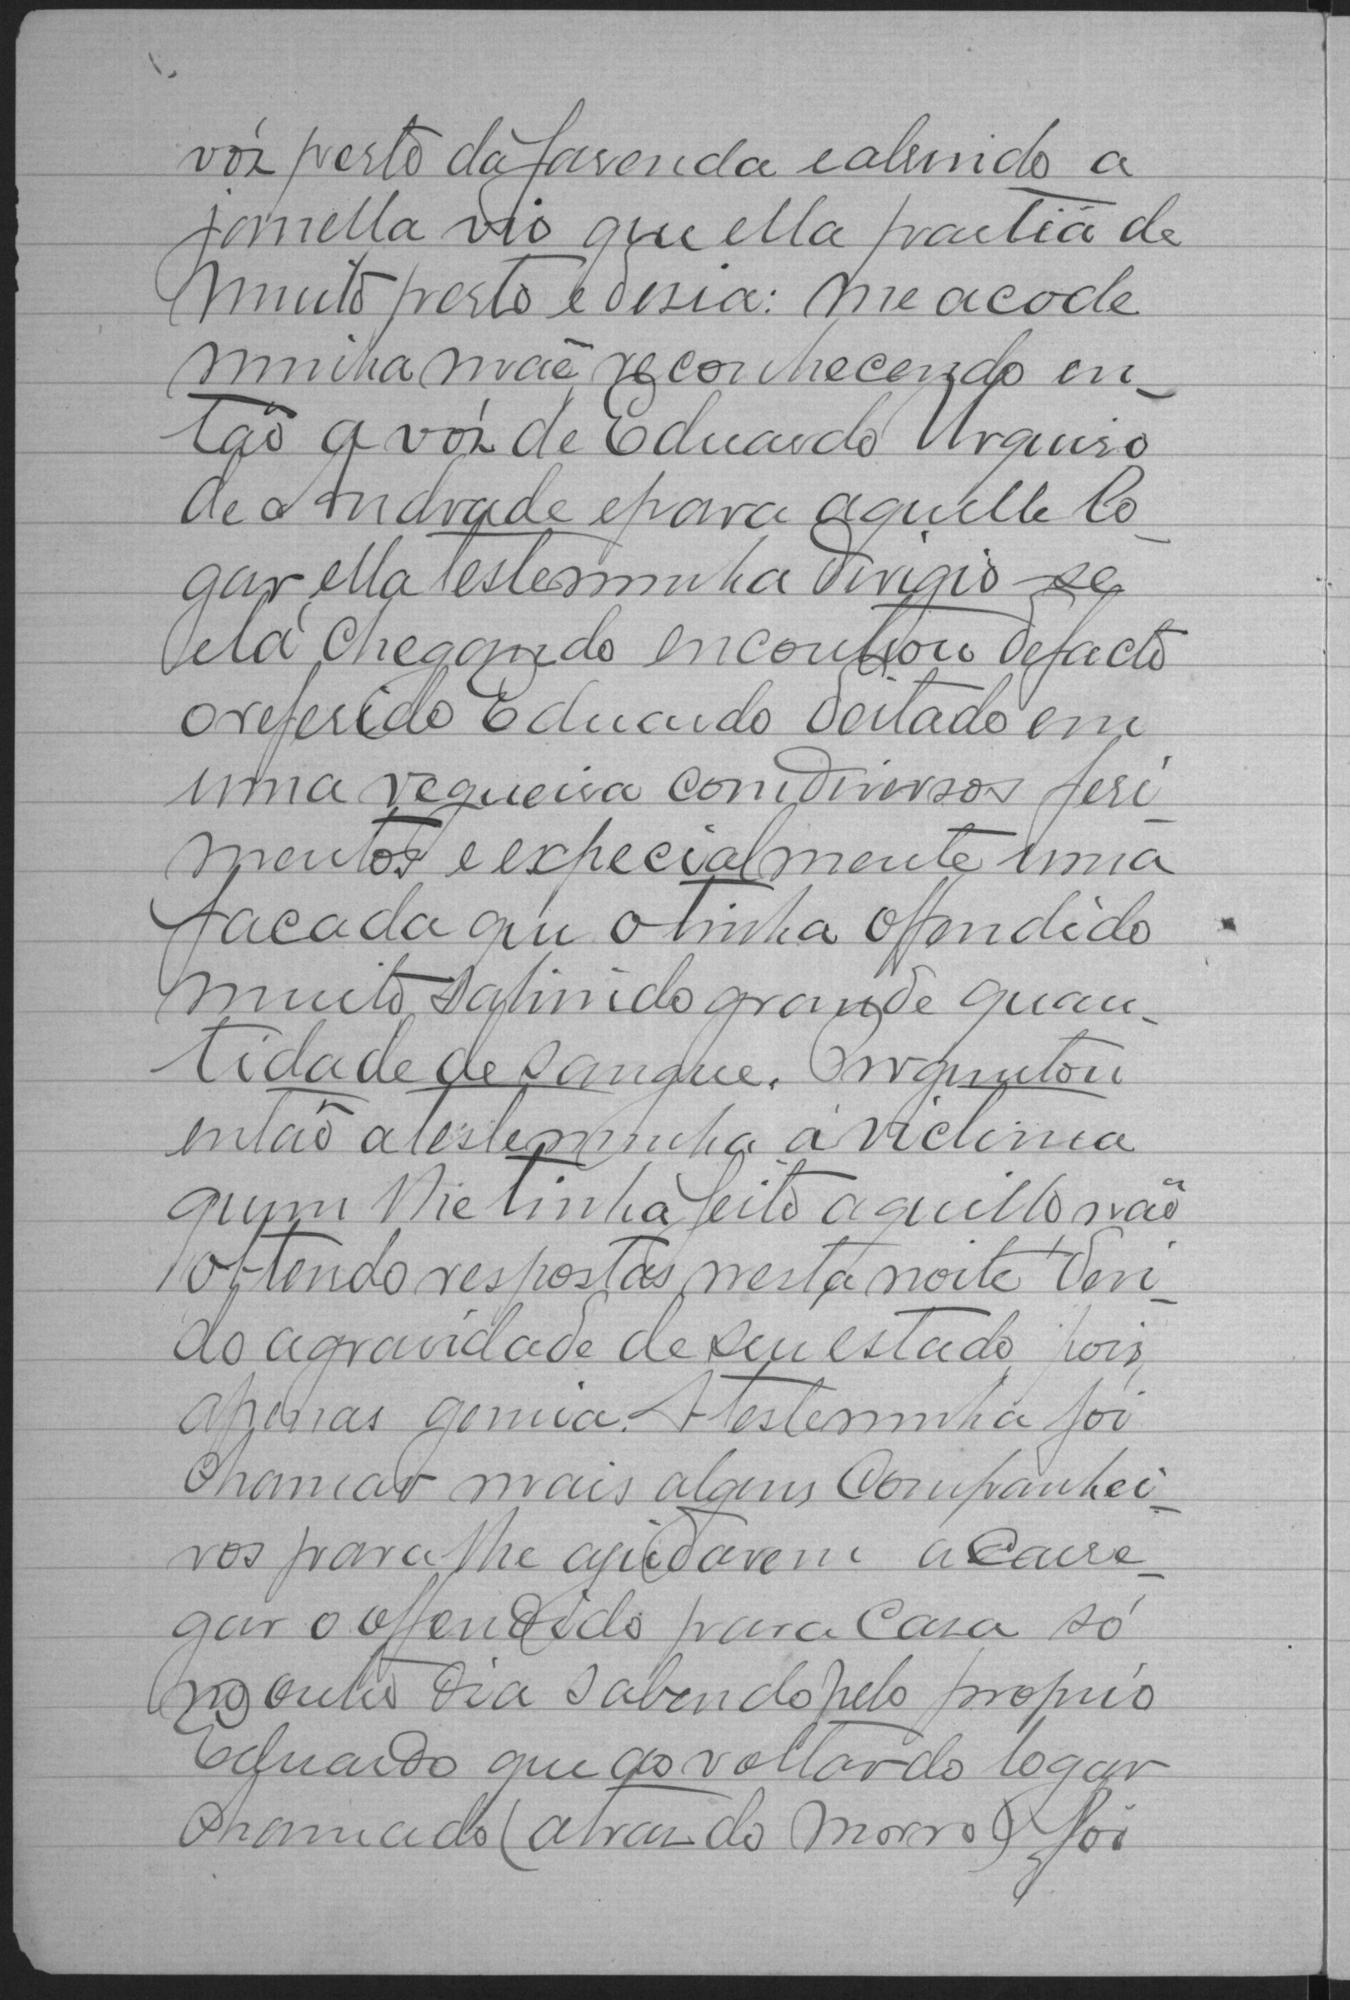 vóz perto da fasenda e abrindo a
janella vio que ella partia de
muito perto e desia: me acode
minha mãe reconhecendo en-
tão a vóz de Eduardo Urquiso
de Andrade e para aquelle lo-
gar ella testemunha dirigio-se
e lá chegando encontrou de facto
o referido Eduardo deitado em
uma regueira com diversos feri-
mentos e expecialmente uma
facada que o tinha offendido
muito sahindo grande quan-
tidade de sangue. Perguntou
então a testemunha á victima
quem lhe tinha feito aquillo não
obtendo respostas nesta noite devi-
do a gravidade de seu estado pois
apenas gemia. A testemunha foi
chamar mais alguns companhei-
ros para lhe ajudarem a carre-
gar o offendido para casa só
no outro dia sabendo pelo proprio
Eduardo que ao voltar do logar
chamado (atraz do morro) foi